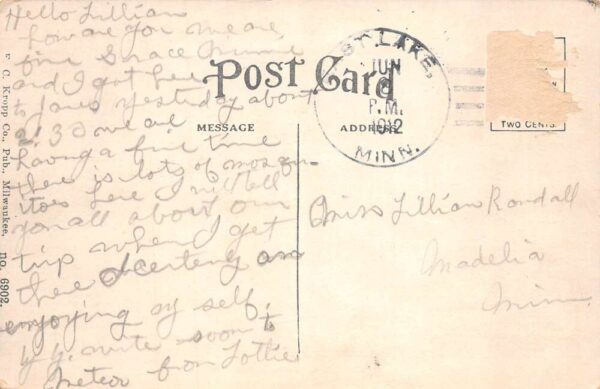 Hello Lillian
how are you we are
fine Grace Minnie
and I got here
to Jones yesterday about
2:30 we are
having a fine time
there is lots of mosqu-
itoes here I will tell
you all about our
trip when I get
there I certenly am
enjoying my self.
by by. write soon to
from Lottie
Post Card
MESSAGE
ADDRESS
ST. LAKE,
JUN
P.M.
1912
MINN.
TWO CENTS
Miss Lillian Randall
Madelia
Minn.
E. C. Kropp Co., Pub., Milwaukee. no. 6902.